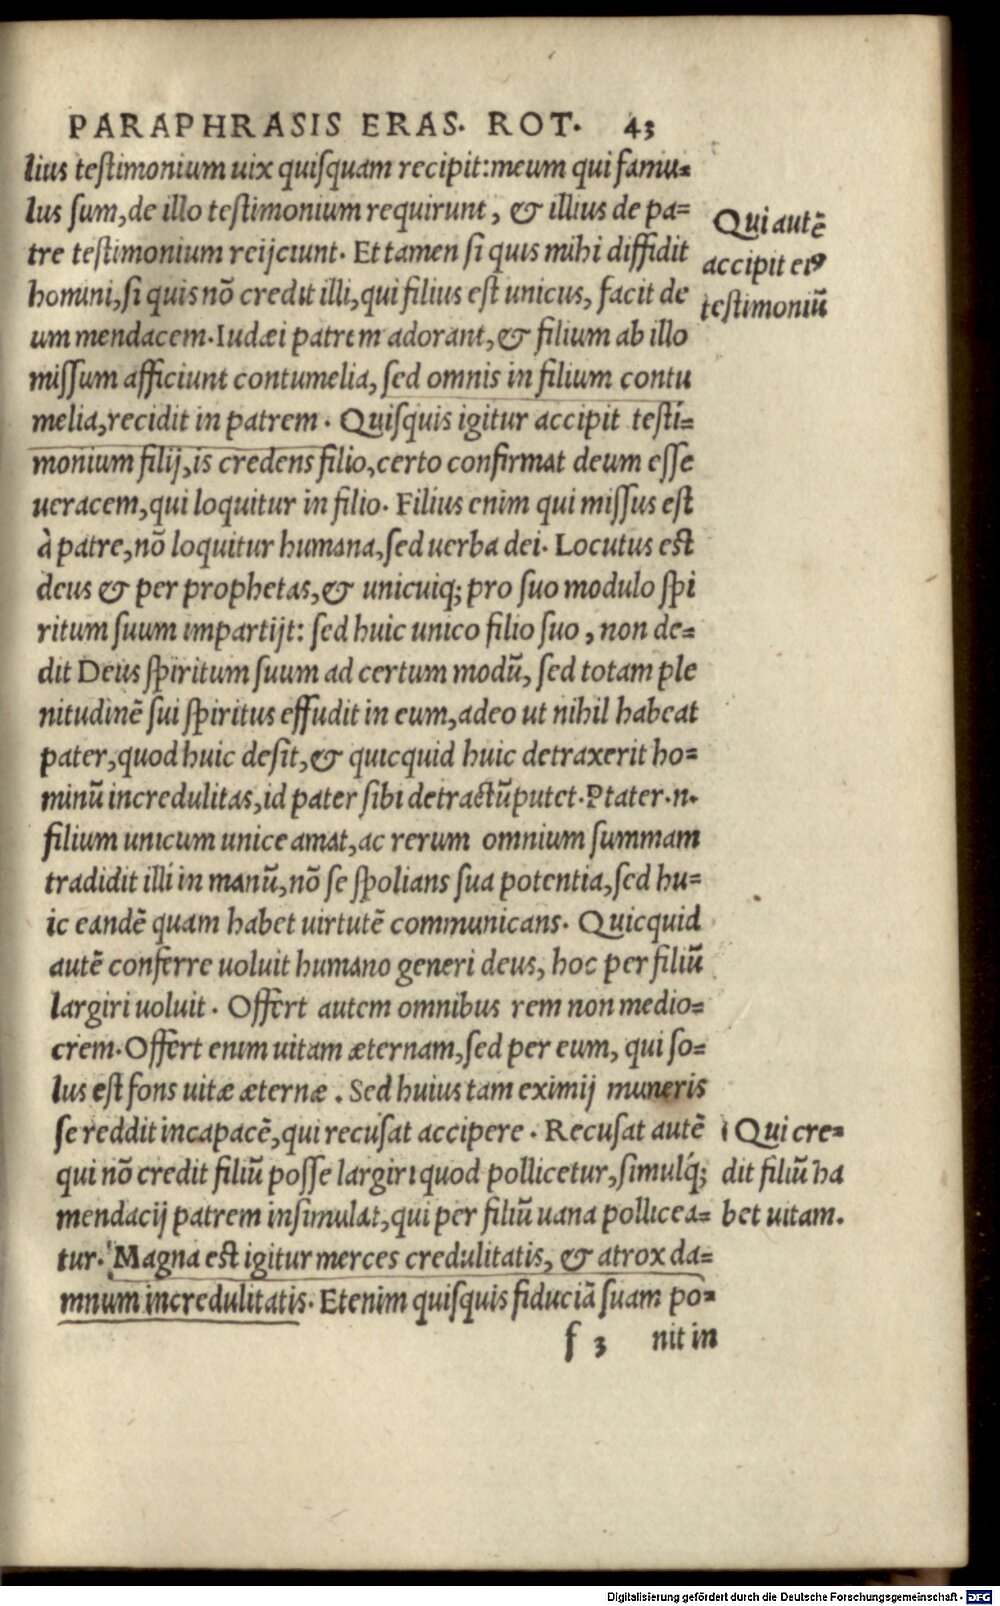 PARAPHRASIS ERAS. ROT. 43
lius testimonium uix quisquam recipit: meum qui famu=
lus sum, de illo testimonium requirunt, & illius de pa=
tre testimonium reijciunt. Et tamen si quis mihi diffidit
homini, si quis nõ credit illi, qui filius est unicus, facit de
um mendacem. Iudæi patrem adorant, & filium ab illo
missum afficiunt contumelia, sed omnis in filium contu
melia, recidit in patrem. Quisquis igitur accipit testi=
monium filij, is credens filio, certo confirmat deum esse
ueracem, qui loquitur in filio. Filius enim qui missus est
à patre, nõ loquitur humana, sed uerba dei. Locutus est
deus & per prophetas, & unicuiq; pro suo modulo spi
ritum suum impartijt: sed huic unico filio suo, non de=
dit Deus spiritum suum ad certum modũ, sed totam ple
nitudinẽ sui spiritus effudit in eum, adeo ut nihil habeat
pater, quod huic desit, & quicquid huic detraxerit ho=
minũ incredulitas, id pater sibi detractũ putet. Ptater.n.
filium unicum unice amat, ac rerum omnium summam
tradidit illi in manũ, nõ se spolians sua potentia, sed hu=
ic eandẽ quam habet uirtutẽ communicans. Quicquid
autẽ conferre uoluit humano generi deus, hoc per filiũ
largiri uoluit. Offert autem omnibus rem non medio=
crem. Offert enim uitam æternam, sed per eum, qui so=
lus est fons uitæ æternæ. Sed huius tam eximij muneris
se reddit incapacẽ, qui recusat accipere. Recusat autẽ
qui nõ credit filiũ posse largiri quod pollicetur, simulq́;
mendacij patrem insimulat, qui per filiũ uana pollicea=
tur. Magna est igitur merces credulitatis, & atrox da=
mnum incredulitatis. Etenim quisquis fiduciã suam po=
f 3 nit in
Qui autẽ
accipit eiꝰ
testimoniũ
Qui cre=
dit filiũ ha
bet uitam.
Digitalisierung gefördert durch die Deutsche Forschungsgemeinschaft - DFG